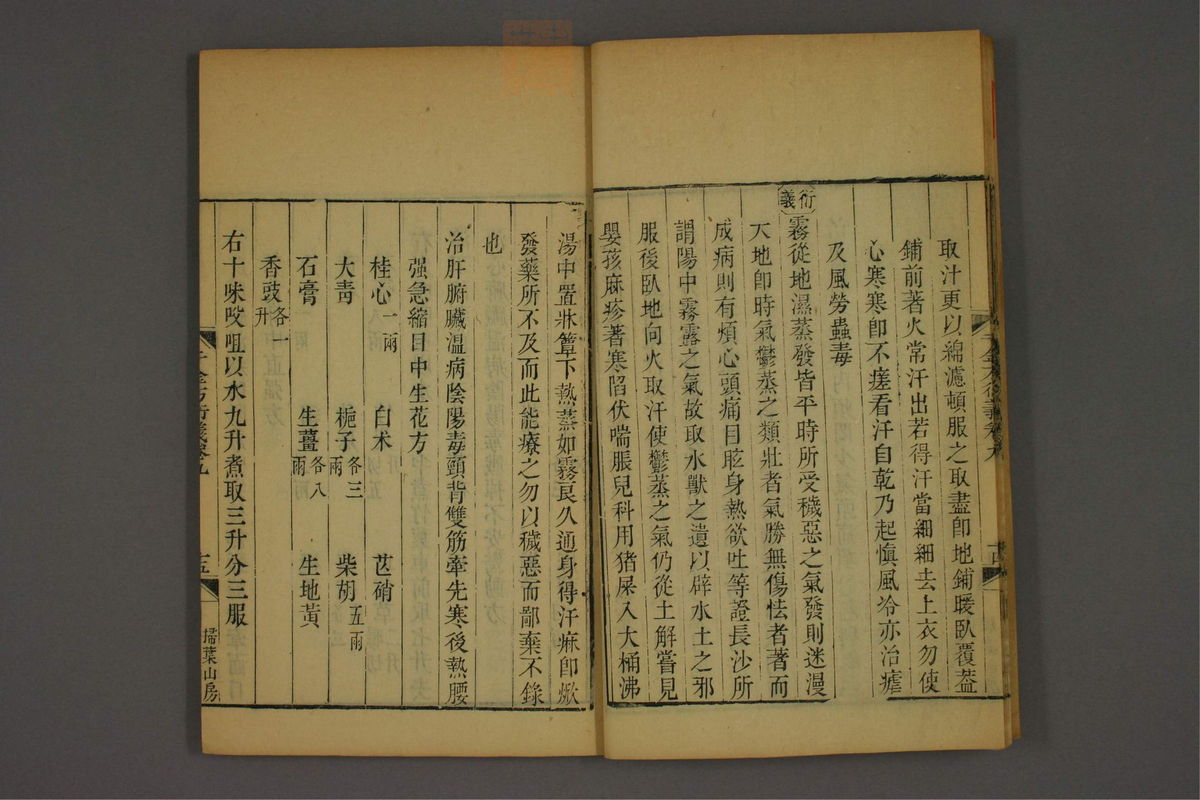 取汁更以綿濾頓服之取盡卽地鋪暖臥覆蓋
鋪前著火常汗出若得汗當細細去上衣勿使
心寒寒卽不瘥看汗自乾乃起愼風冷亦治瘧
及風勞蟲毒
衍義 霧從地濕蒸發皆平時所受穢惡之氣發則迷漫
天地卽時氣鬱蒸之類壯者氣勝無傷怯者著而
成病則有煩心頭痛目眩身熱欲吐等證長沙所
謂陽中霧露之氣故取水獸之遺以辟水土之邪
服後臥地向火取汗使鬱蒸之氣仍從土解嘗見
嬰孩麻疹著寒陷伏喘脹兒科用猪屎入大桶沸
湯中置牀簟下熱蒸如霧良久通身得汗麻卽焮
發藥所不及而此能療之勿以穢惡而鄙棄不錄
也
治肝腑臟溫病陰陽毒頸背雙筋牽先寒後熱腰
强急縮目中生花方
桂心一兩 白术 芒硝
大靑 梔子各三兩 柴胡五兩
石膏 生薑各八兩 生地黃
香豉各一升
右十味㕮咀以水九升煮取三升分三服
千金方衍義卷九
十五
掃葉山房